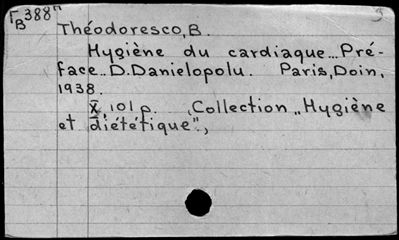 Γ 388
B
Théodoresco, B.
Hygiène du cardiaque... Pré-
face.. D. Danielopolu. Paris, Doin,
1938.
X, 101 p. , Collection „Hygiène
et diététique",